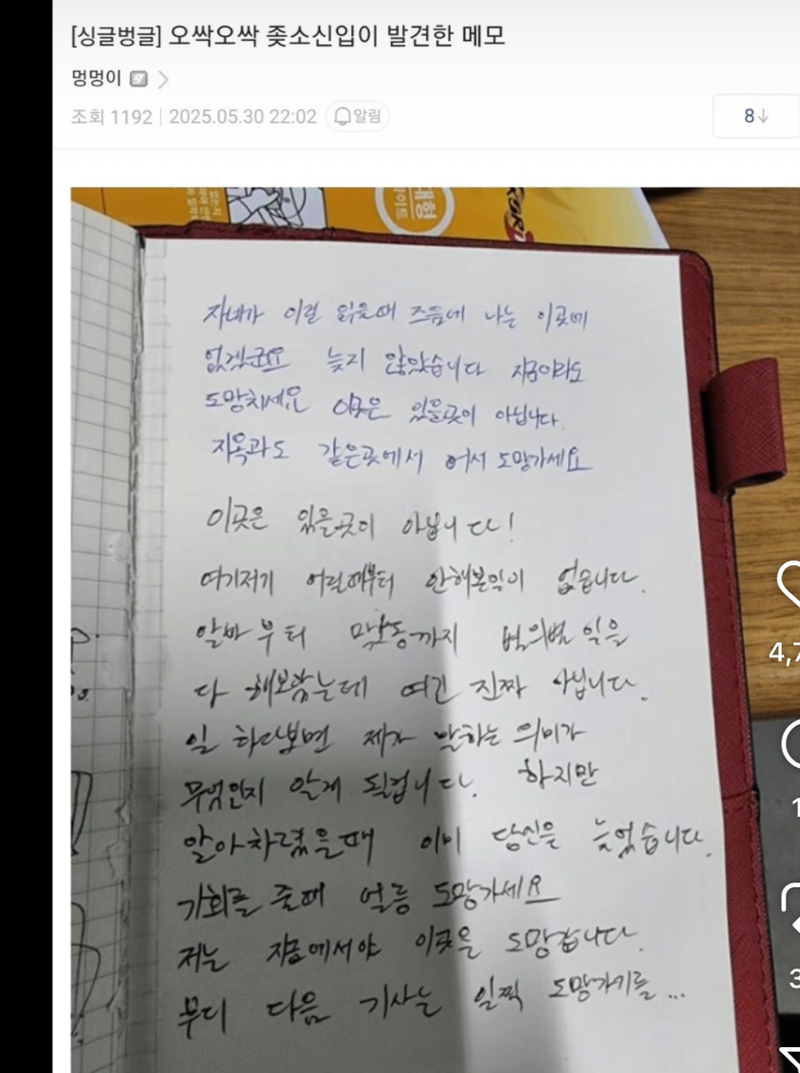 [싱글벙글] 오싹오싹 좆소신입이 발견한 메모
멍멍이
조회 1192 2025.05.30 22:02 알림
8↓
자네가 이럴 읽을때 즈음에 나는 이곳에
없겠군요 늦지 않았습니다 지금이라도
도망치세요 이곳은 있을곳이 아닙니다.
지옥과도 같은곳에서 어서 도망가세요
이곳은 있을곳이 아닙니다!
여기저기 어릴때부터 안해본일이 없습니다.
알바부터 막노동까지 별의별 일을
다 해보았는데 여긴 진짜 아닙니다.
일 하다보면 제가 말하는 의미가
무엇인지 알게 될겁니다. 하지만
알아차렸을때 이미 당신은 늦었습니다.
기회를 줄때 얼릉 도망가세요
저는 지금에서야 이곳을 도망갑니다.
부디 다음 기사는 일찍 도망가기를...
4,7
1
3